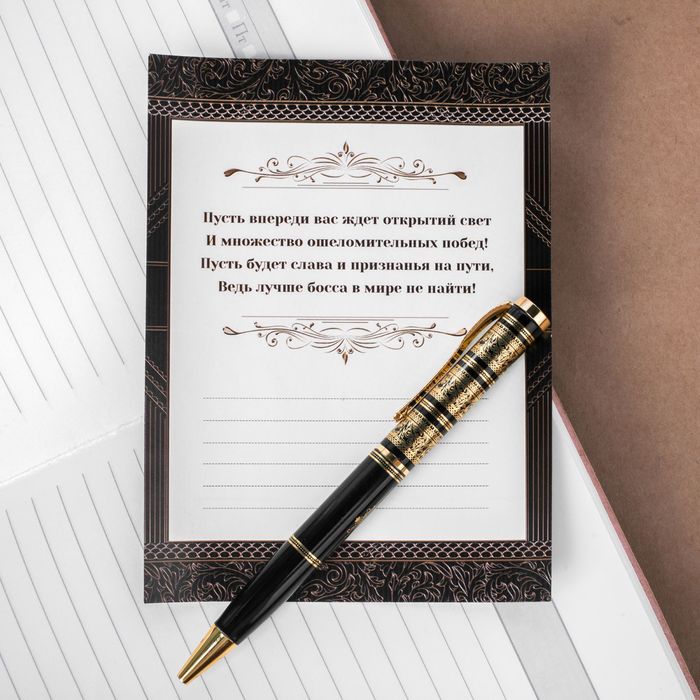 Пт
Пусть впереди вас ждет открытий свет
И множество ошеломительных побед!
Пусть будет слава и признанья на пути,
Ведь лучше босса в мире не найти!